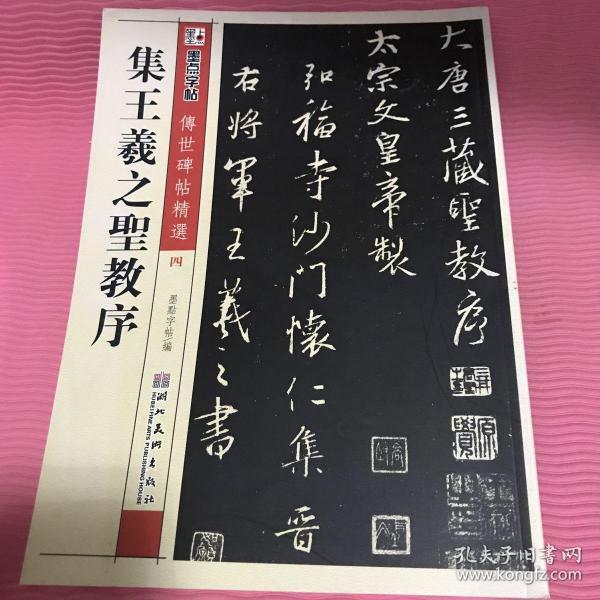 大唐三藏聖教序
太宗文皇帝製
弘福寺沙門懷仁集晉
右將軍王羲之書
墨点字帖
傳世碑帖精選
四
墨點字帖/編
集王羲之聖教序
湖北美术出版社
HUBEI FINE ARTS PUBLISHING HOUSE
孔夫子旧書网
www.kongfz.com